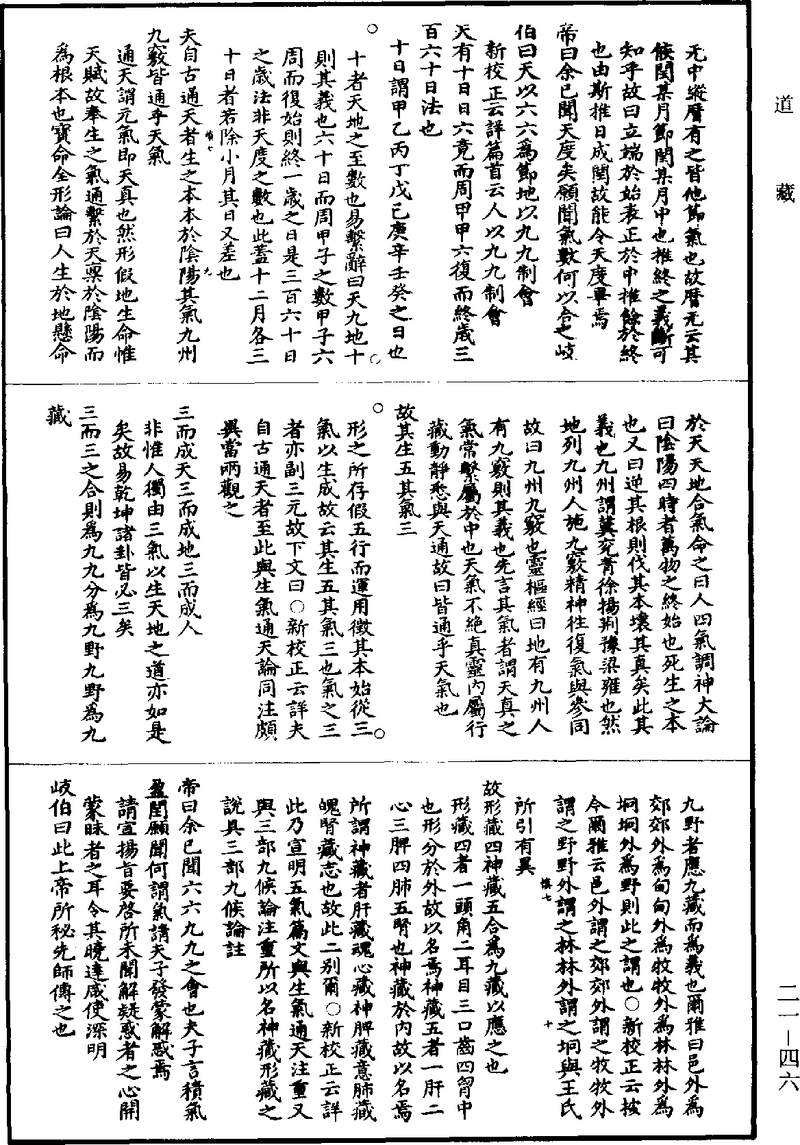 道藏
无中縱曆有之皆他節氣也故曆无云其
候閏某月節閏某月中也推終之義斷可
知乎故曰立端於始表正於中推餘於終
也由斯推日成閏故能令天度畢焉
帝曰余已聞天度矣願聞氣數何以合之岐
伯曰天以六六爲節地以九九制會
新校正云詳篇首云人以九九制會
天有十日日六竟而周甲甲六復而終歲三
百六十日法也
十日謂甲乙丙丁戊己庚辛壬癸之日也
十者天地之至數也易繫辭曰天九地十
則其義也六十日而周甲子之數甲子六
周而復始則終一歲之日是三百六十日
之歲法非天度之數也此蓋十二月各三
十日者若除小月其日又差也
夫自古通天者生之本本於陰陽其氣九州
九竅皆通乎天氣
通天謂元氣即天真也然形假地生命惟
天賦故奉生之氣通繫於天稟於陰陽而
爲根本也寶命全形論曰人生於地懸命
於天天地合氣命之曰人四氣調神大論
曰陰陽四時者萬物之終始也死生之本
也又曰逆其根則伐其本壞其真矣此其
義也九州謂冀兗青徐揚荆豫梁雍也然
地列九州人施九竅精神往復氣與參同
故曰九州九竅也靈樞經曰地有九州人
有九竅則其義也先言其氣者謂天真之
氣常繫屬於中也天氣不絶真靈内屬行
藏動靜悉與天通故曰皆通乎天氣也
故其生五其氣三
形之所存假五行而運用徵其本始從三
氣以生成故云其生五其氣三也氣之三
者亦副三元故下文曰○新校正云詳夫
自古通天者至此與生氣通天論同注頗
異當兩觀之
三而成天三而成地三而成人
非惟人獨由三氣以生天地之道亦如是
矣故易乾坤諸卦皆必三矣
三而三之合則爲九九分爲九野九野爲九
藏
九野者應九藏而爲義也爾雅曰邑外爲
郊郊外爲甸甸外爲牧牧外爲林林外爲
坰坰外爲野則此之謂也○新校正云按
今爾雅云邑外謂之郊郊外謂之牧牧外
謂之野野外謂之林林外謂之坰與王氏
所引有異
故形藏四神藏五合爲九藏以應之也
形藏四者一頭角二耳目三口齒四胷中
也形分於外故以名焉神藏五者一肝二
心三脾四肺五腎也神藏於内故以名焉
所謂神藏者肝藏魂心藏神脾藏意肺藏
魄腎藏志也故此二别爾○新校正云詳
此乃宣明五氣篇文與生氣通天注重又
與三部九候論注重所以名神藏形藏之
説具三部九候論註
帝曰余已聞六六九九之會也夫子言積氣
盈閏願聞何謂氣請夫子發蒙解惑焉
請宣揚旨要啓所未聞解疑惑者之心開
蒙昧者之耳令其曉達咸使深明
岐伯曰此上帝所秘先師傳之也
二一—四六